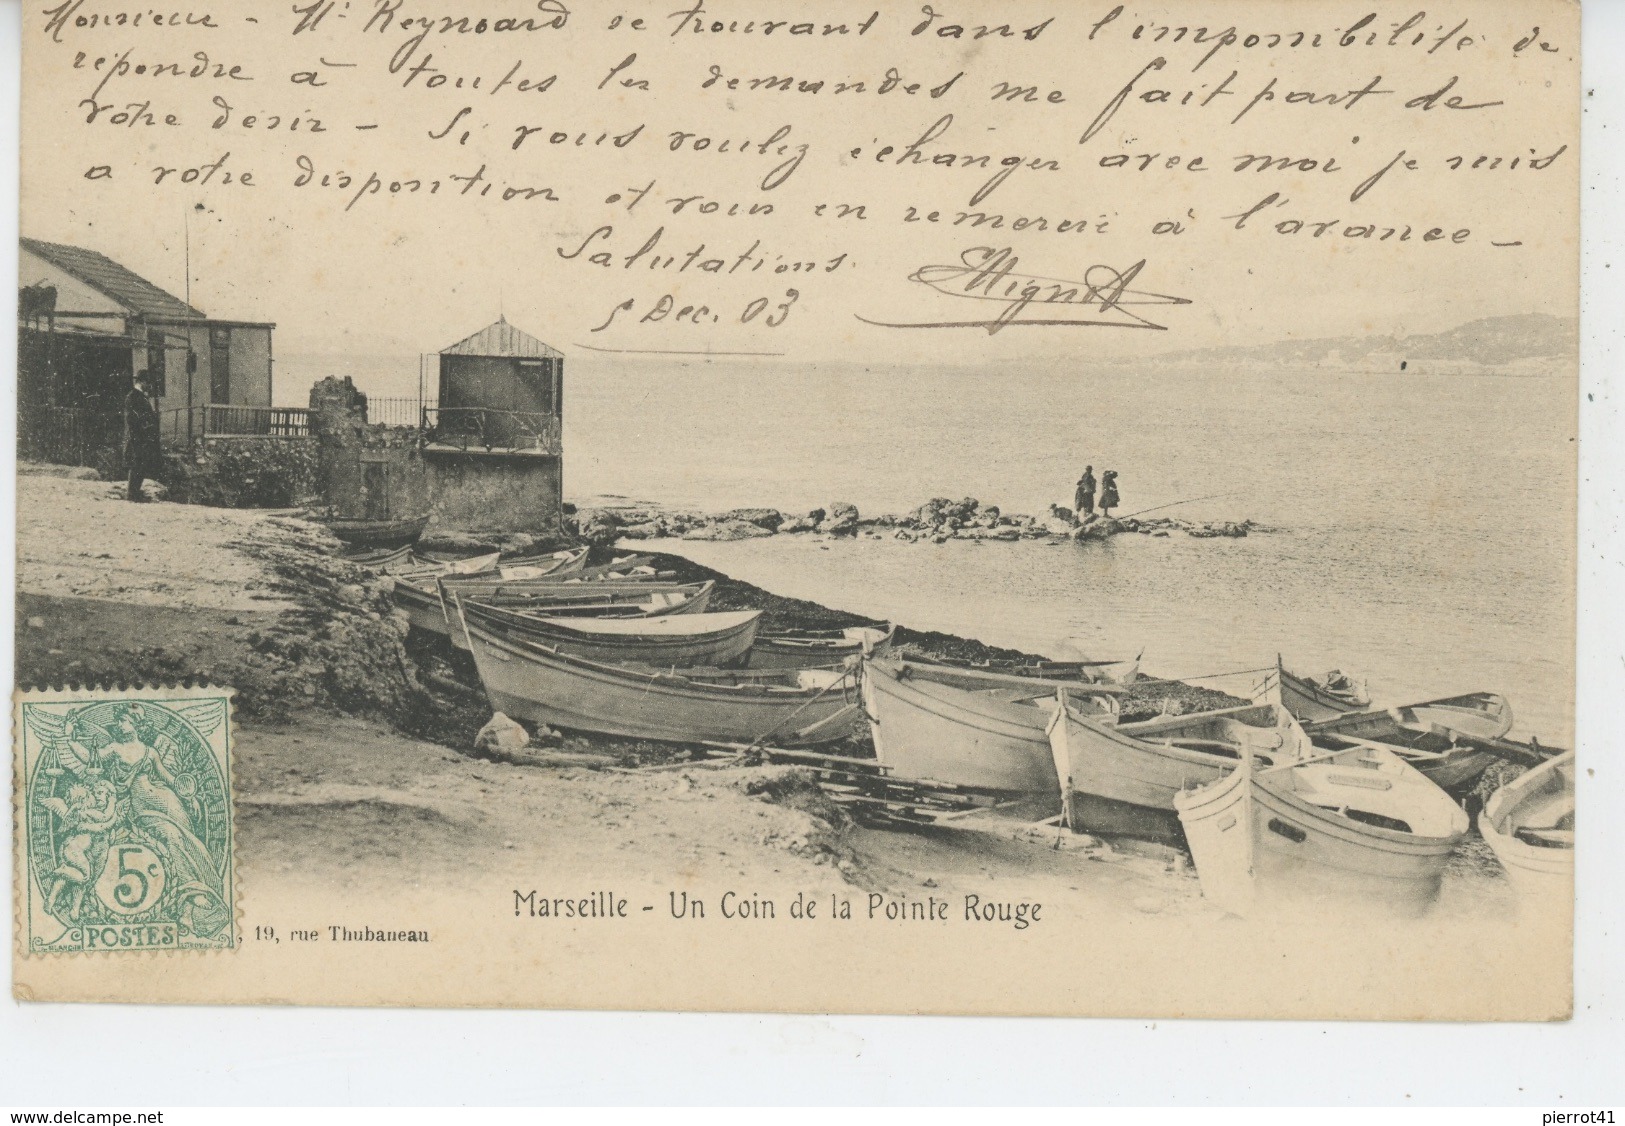 Monsieur - Mr Reynoard se trouvant dans l'impossibilité de
répondre à toutes les demandes me fait part de
votre désir - Si vous voulez échanger avec moi je suis
a votre disposition et vous en remercie à l'avance -
Salutations
5 Dec. 03
Mignot
RÉPUBLIQUE FRANÇAISE
5c
POSTES
, 19, rue Thubaneau
Marseille - Un Coin de la Pointe Rouge
www.delcampe.net
pierrot41